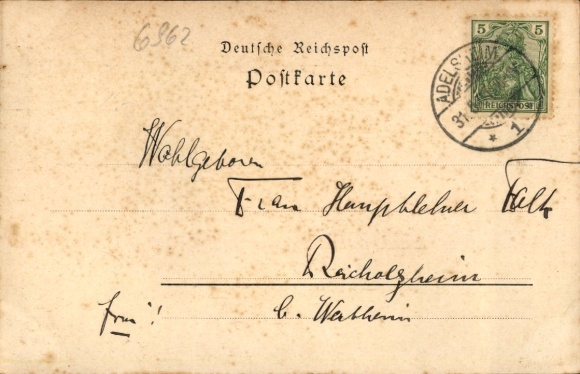 6962
Deutsche Reichspost
Postkarte
5 5
REICHSPOST
ADELSHEIM
31.
* 1
Wohlgeboren
Frau Hauptlehrer
Reicholzheim
b. Wertheim
frei!